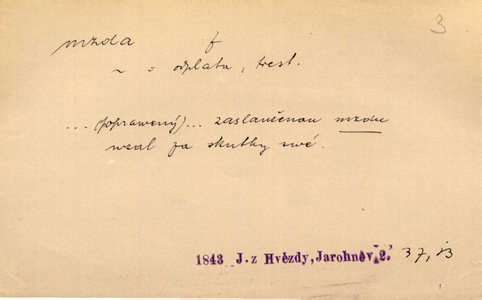 3
mzda f
~ = odplata, trest.
... (poprawený) ... zaslauženau mzdu
wzal za skutky swé.
1843 J. z Hvězdy, Jarohněv 2. 37, 13